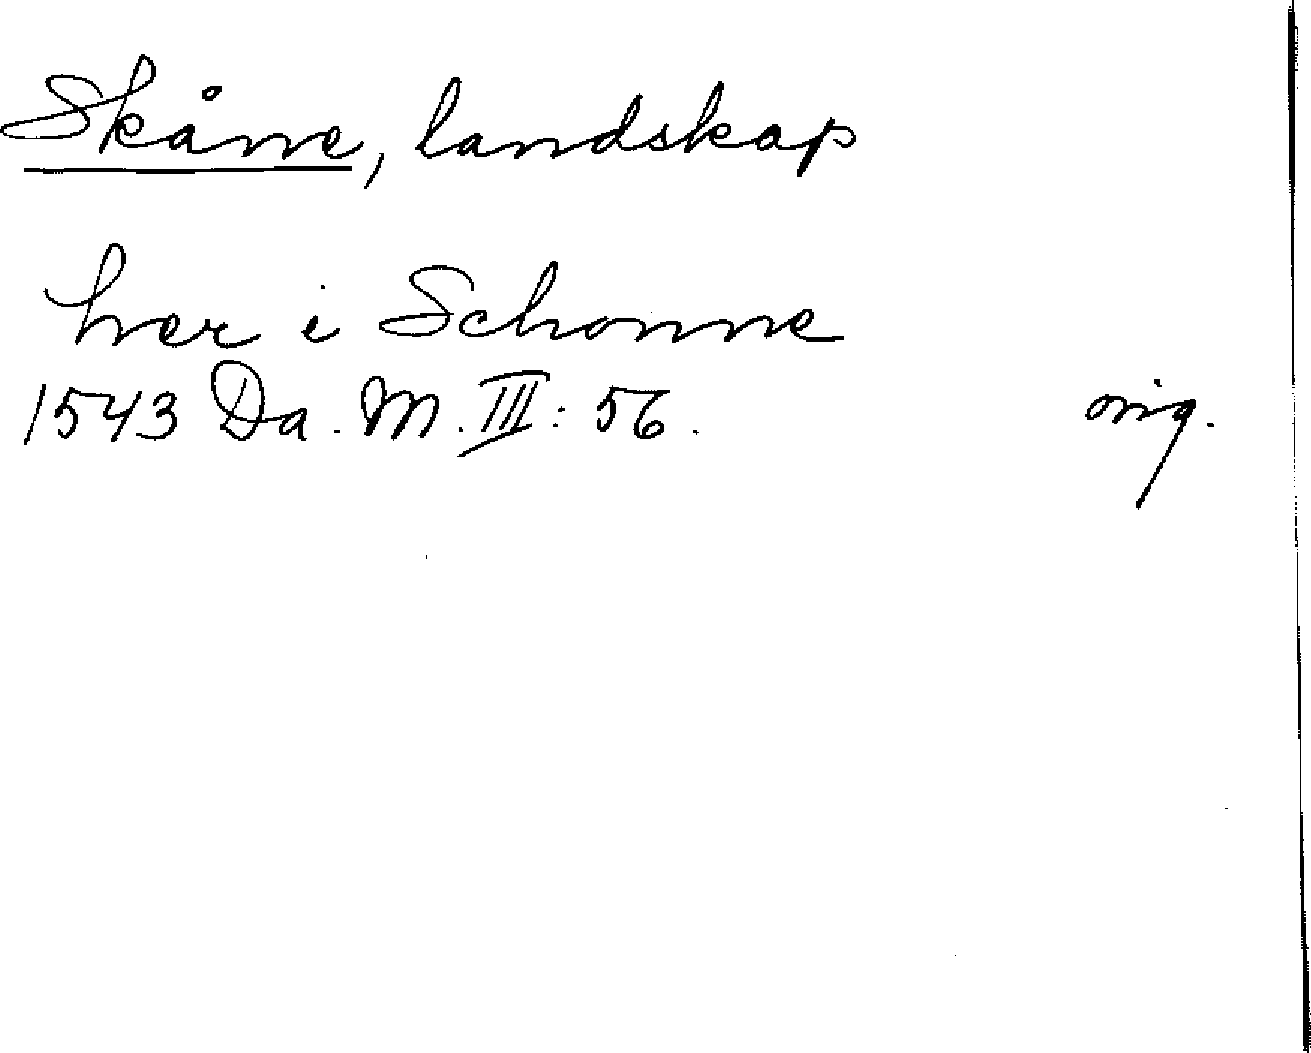 Skåne, landskap
her i Schonne
1543 Da. M. III: 56. orig.